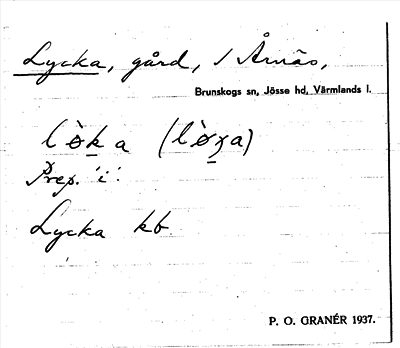 Lycka, gård, i Årnäs,
Brunskogs sn, Jösse hd, Värmlands l.
Prep. 'i'.
Lycka kb
P. O. GRANÉR 1937.